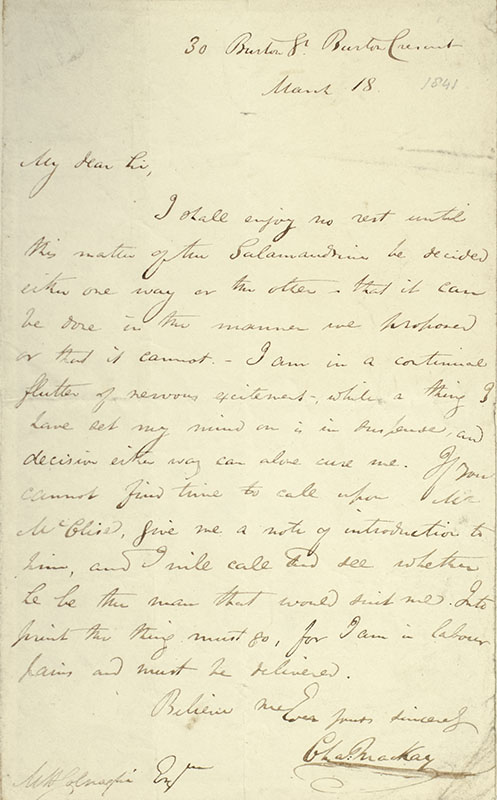 30 Burton St Burton Crescent
March 18. 1841
My dear Sir,
I shall enjoy no rest until
this matter of the Salamandrine be decided
either one way or the other - that it can
be done in the manner we proposed
or that it cannot. - I am in a continual
flutter of nervous excitement, while a thing I
have set my mind on is in suspense, and
decision either way can alone cure me. If you
cannot find time to call upon Mr
McClise, give me a note of introduction to
him, and I will call and see whether
he be the man that would suit me. Into
print the thing must go, for I am in labour
pains and must be delivered.
Believe me Ever yours sincerely
Chas. Mackay
Colnaghi Esqre